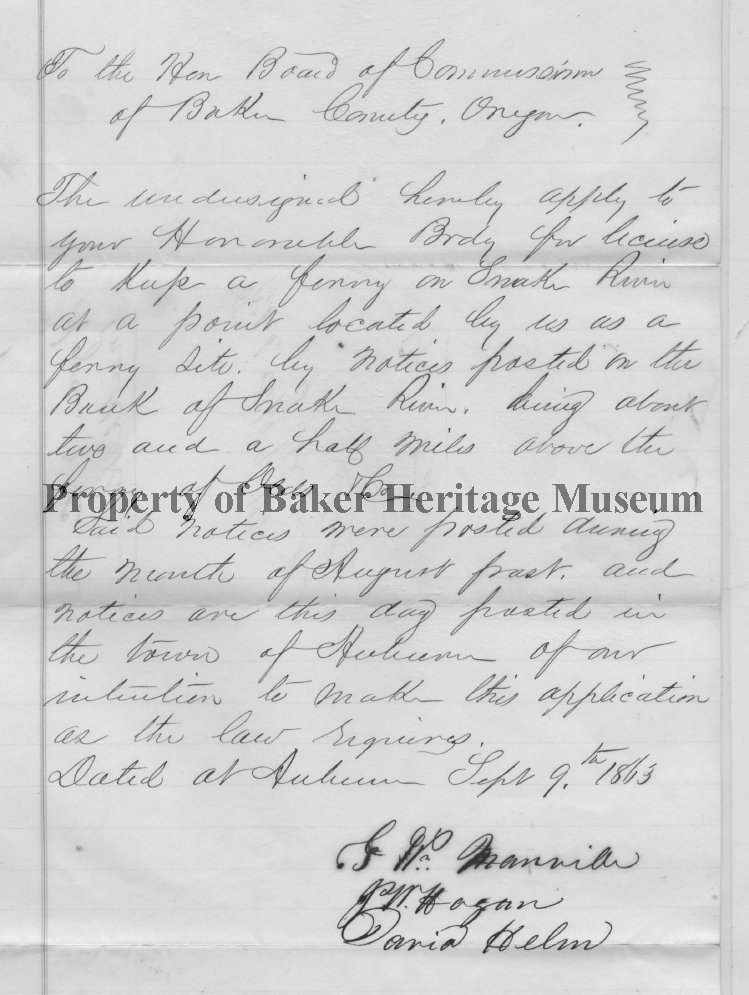 To the Hon Board of Commissioners
of Baker County. Oregon.
The undersigned hereby apply to
your Honorable Body for license
to keep a ferry on Snake River
at a point located by us as a
ferry site. by notices posted on the
Bank of Snake River. being about
two and a half miles above the
ferry of & Co
Property of Baker Heritage Museum
Said notices were posted during
the month of August past. and
notices are this day posted in
the town of Auburn of our
intention to make this application
as the law requires.
Dated at Auburn Sept 9.th 1863
Manville
Hogan
David Helm